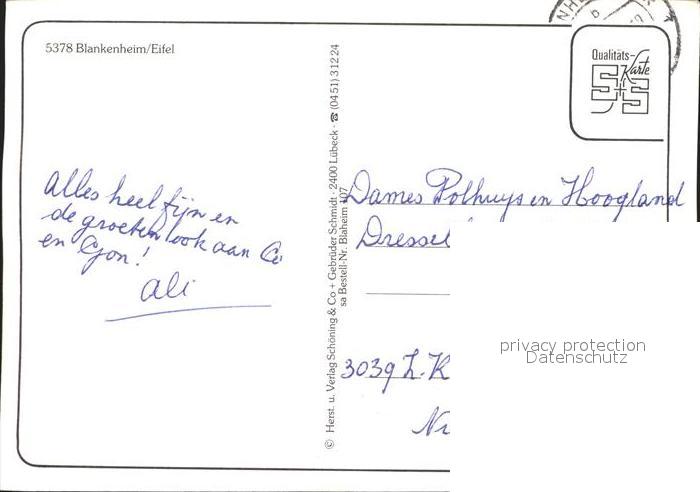 5378 Blankenheim/Eifel
Qualitäts-
Karte
S+S
Alles heel fijn en
de groeten ook aan Co
en Gon!
Ali
© Herst. u. Verlag Schöning & Co + Gebrüder Schmidt · 2400 Lübeck · ☎ (04 51) 3 12 24
sa Bestell-Nr. Blaheim 107
Dames Polhuys en Hoogland
Dressel
3039 Z.K
Ni
privacy protection
Datenschutz